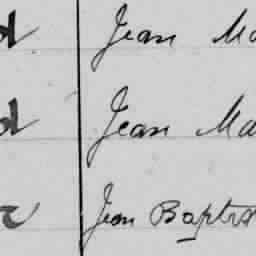 d Jean Ma
d Jean Ma
r Jean Baptis